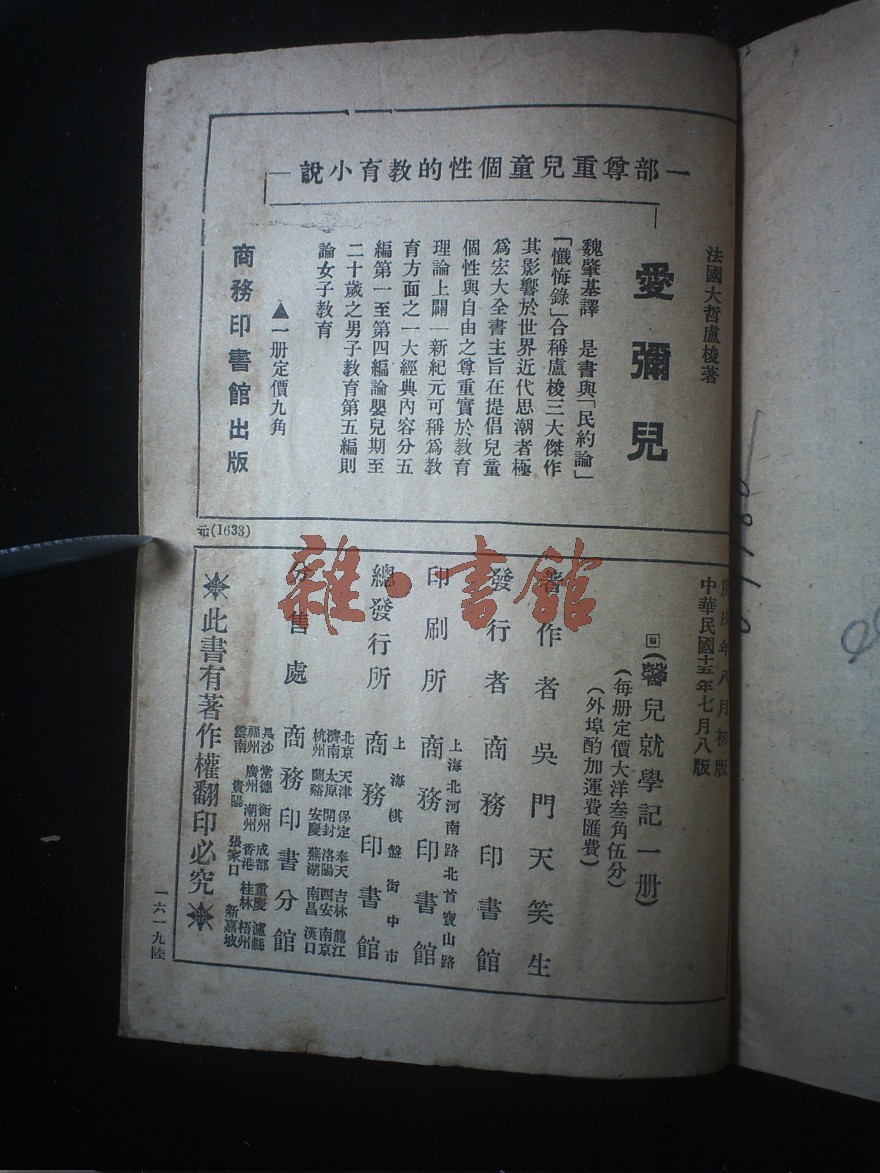 一部尊重兒童個性的教育小說
法國大哲盧梭著
愛彌兒
魏肇基譯　是書與「民約論」
「懺悔錄」合稱盧梭三大傑作
其影響於世界近代思潮者極
爲宏大全書主旨在提倡兒童
個性與自由之尊重實於教育
理論上闢一新紀元可稱爲教
育方面之一大經典內容分五
編第一至第四編論嬰兒期至
二十歲之男子教育第五編則
論女子教育
▲一册定價九角
商務印書館出版
元(1633)
庚戌年八月初版
中華民國十五年七月八版
(馨兒就學記一册)
(每册定價大洋叁角伍分)
(外埠酌加運費匯費)
著作者　吳門天笑生
發行者　商務印書館
印刷所　上海北河南路北首寶山路　商務印書館
總發行所　上海棋盤街中市　商務印書館
分售處　商務印書分館
北京　天津　保定　奉天　吉林　龍江
濟南　太原　開封　洛陽　西安　南京
杭州　蘭谿　安慶　蕪湖　南昌　漢口
長沙　常德　衡州　成都　重慶　瀘縣
福州　廣州　潮州　香港　桂林　梧州
雲南　貴陽　張家口　新嘉坡
此書有著作權翻印必究
一六一九陸
雜·書館